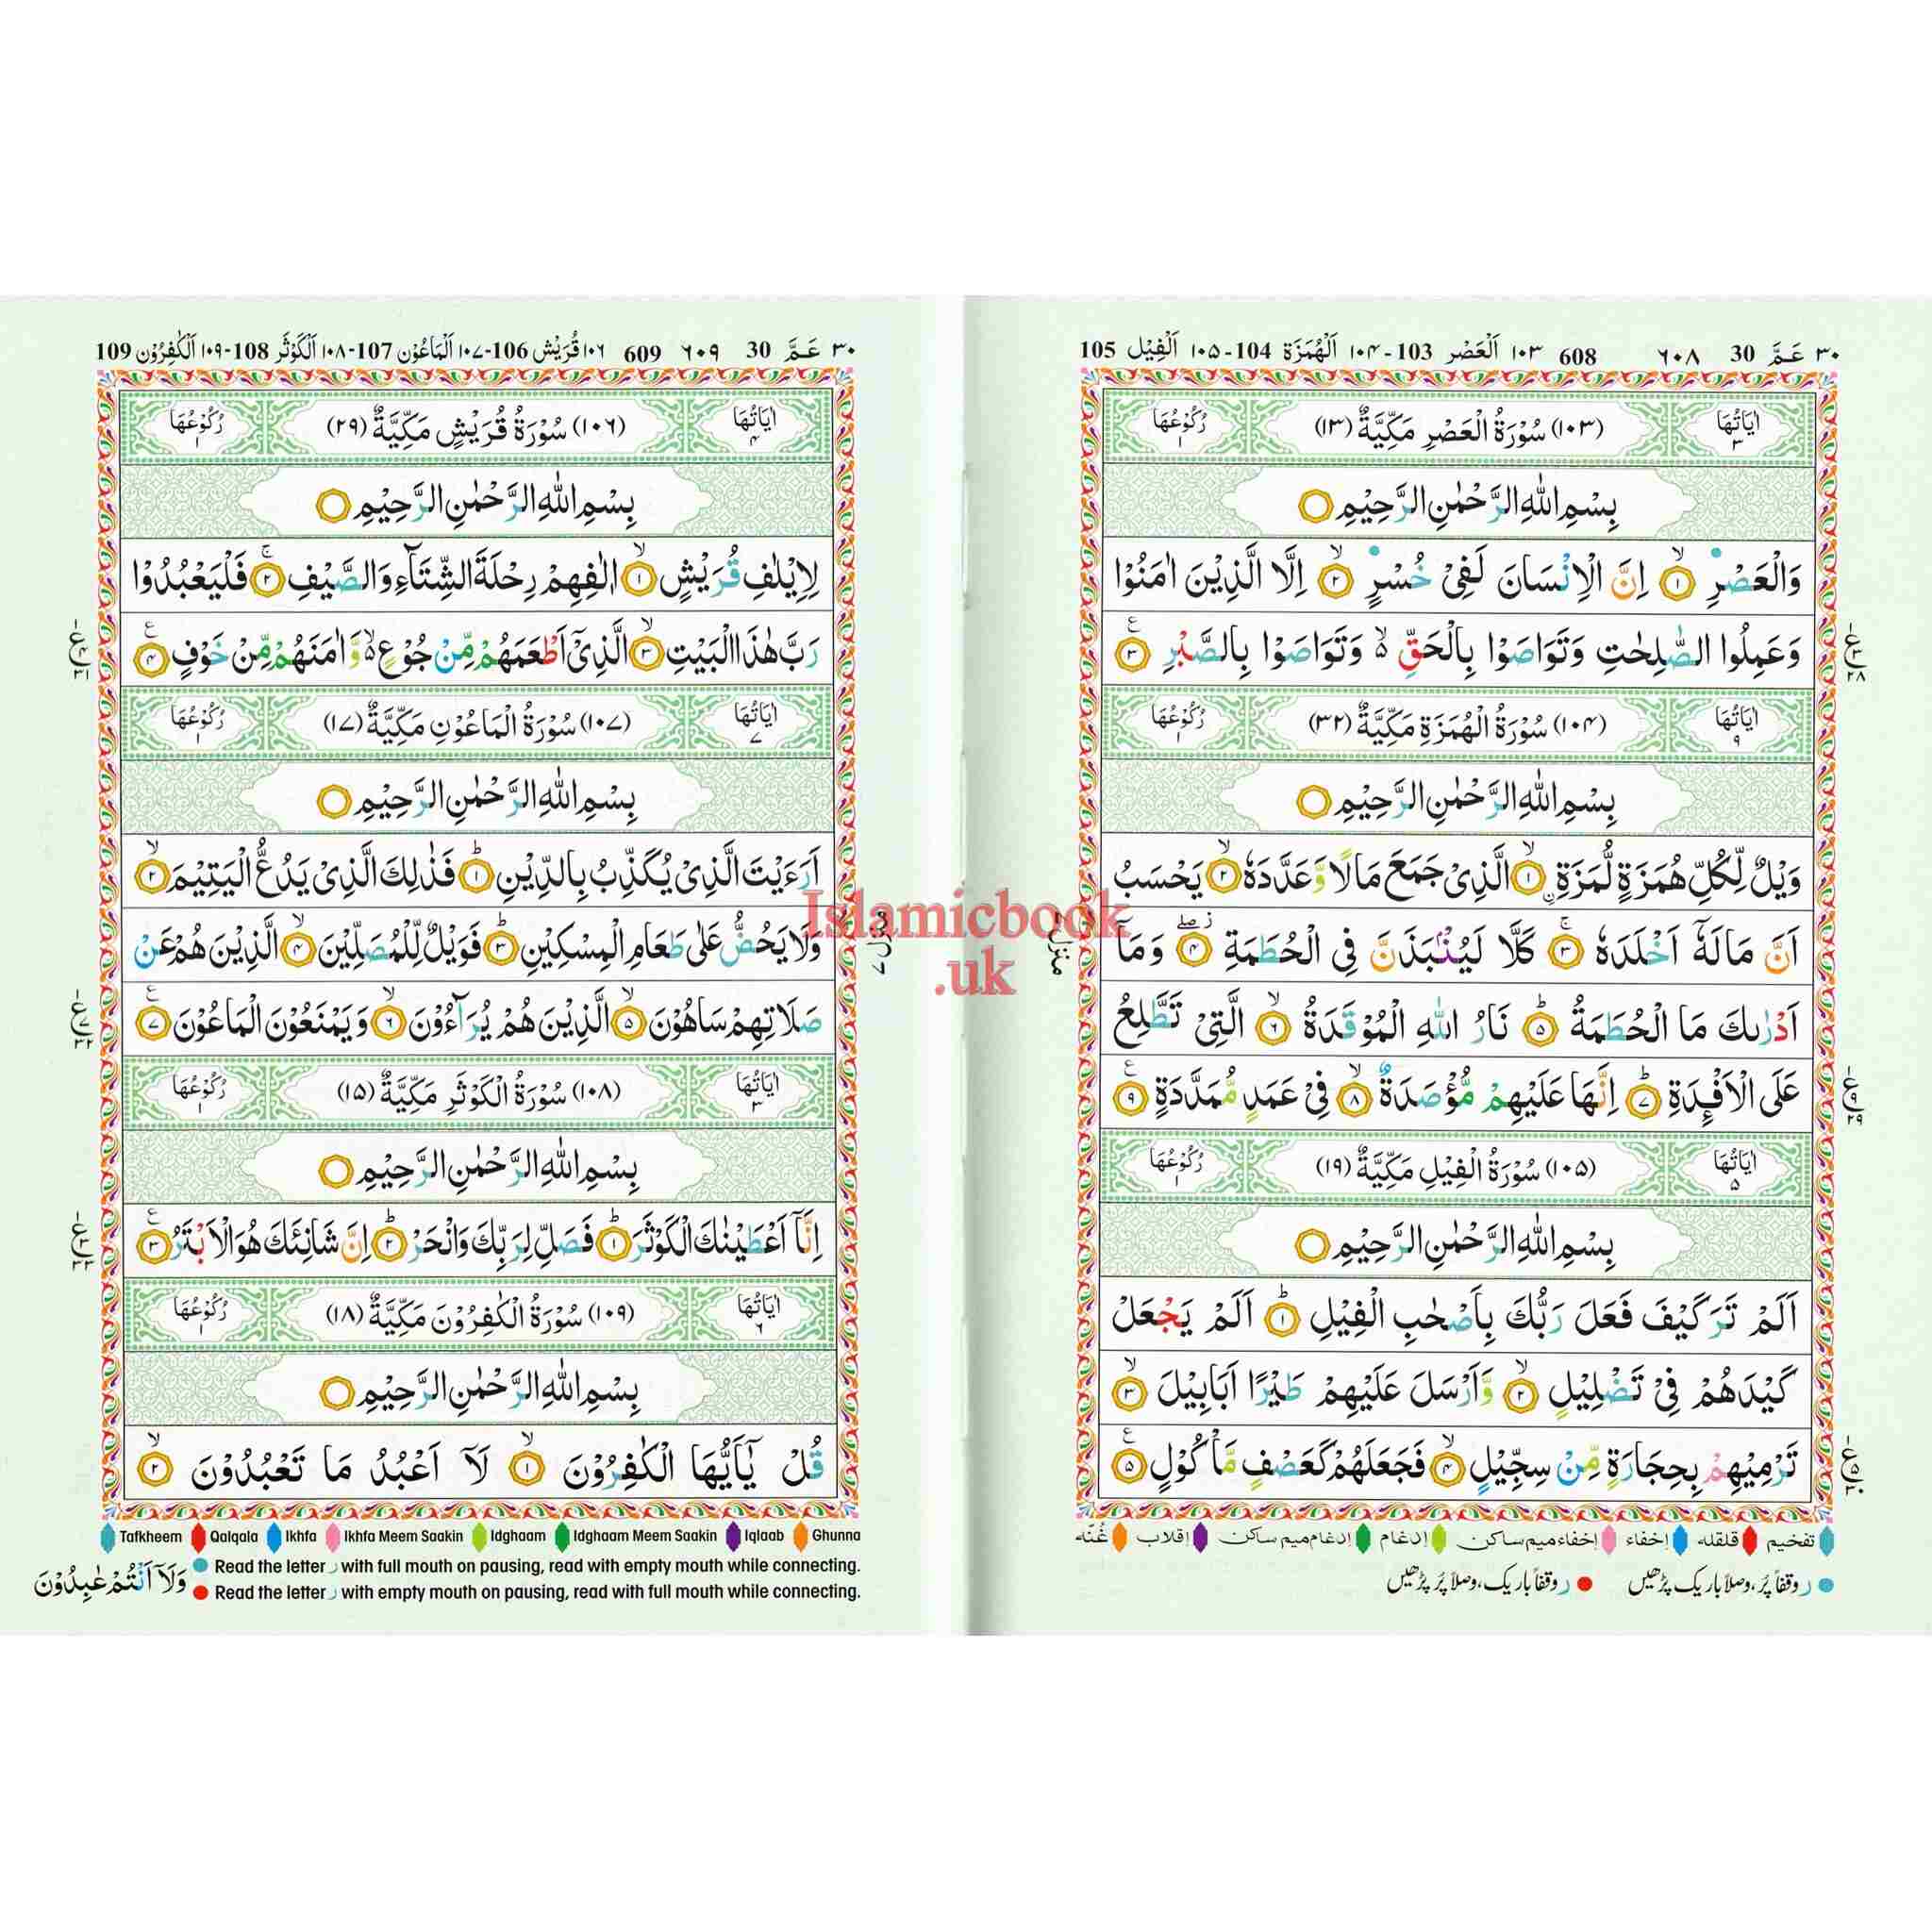 ٣٠ عَمَّ 30 ٦٠٨ 608 ١٠٣ اَلْعَصْر 103-١٠۴ اَلْهُمَزَة 104-١٠۵ اَلْفِيْل 105
اٰيَاتُهَا ٣ (١٠٣) سُوْرَةُ الْعَصْرِ مَكِّيَّةٌ (١٣) رُكُوْعُهَا ١
بِسْمِ اللّٰهِ الرَّحْمٰنِ الرَّحِيْمِ
وَالْعَصْرِ ۙ١ اِنَّ الْاِنْسَانَ لَفِيْ خُسْرٍ ۙ٢ اِلَّا الَّذِيْنَ اٰمَنُوْا
وَعَمِلُوا الصّٰلِحٰتِ وَتَوَاصَوْا بِالْحَقِّ ۙ وَتَوَاصَوْا بِالصَّبْرِ ٣
ع ٣ ٢٨
اٰيَاتُهَا ٩ (١٠۴) سُوْرَةُ الْهُمَزَةِ مَكِّيَّةٌ (٣٢) رُكُوْعُهَا ١
بِسْمِ اللّٰهِ الرَّحْمٰنِ الرَّحِيْمِ
وَيْلٌ لِّكُلِّ هُمَزَةٍ لُّمَزَةِ ۙ١ الَّذِيْ جَمَعَ مَالًا وَّعَدَّدَهٗ ۙ٢ يَحْسَبُ
اَنَّ مَالَهٗٓ اَخْلَدَهٗ ۚ٣ كَلَّا لَيُنْۢبَذَنَّ فِي الْحُطَمَةِ ۴ وَمَآ
اَدْرٰىكَ مَا الْحُطَمَةُ ۭ۵ نَارُ اللّٰهِ الْمُوْقَدَةُ ۙ٦ الَّتِيْ تَطَّلِعُ
عَلَى الْاَفْـِٕدَةِ ۭ٧ اِنَّهَا عَلَيْهِمْ مُّؤْصَدَةٌ ۙ٨ فِيْ عَمَدٍ مُّمَدَّدَةٍ ٩
ع ٩ ٢٩
اٰيَاتُهَا ۵ (١٠۵) سُوْرَةُ الْفِيْلِ مَكِّيَّةٌ (١٩) رُكُوْعُهَا ١
بِسْمِ اللّٰهِ الرَّحْمٰنِ الرَّحِيْمِ
اَلَمْ تَرَ كَيْفَ فَعَلَ رَبُّكَ بِاَصْحٰبِ الْفِيْلِ ۭ١ اَلَمْ يَجْعَلْ
كَيْدَهُمْ فِيْ تَضْلِيْلٍ ۙ٢ وَّاَرْسَلَ عَلَيْهِمْ طَيْرًا اَبَابِيْلَ ۙ٣
تَرْمِيْهِمْ بِحِجَارَةٍ مِّنْ سِجِّيْلٍ ۙ۴ فَجَعَلَهُمْ كَعَصْفٍ مَّاْكُوْلٍ ۵
ع ۵ ٣٠
منزل
تفخيم قلقله إخفاء إخفاء ميم ساكن إدغام إدغام ميم ساكن إقلاب غُنّه
ر وقفاً پُر، وصلاً باریک پڑھیں ر وقفاً باریک، وصلاً پُر پڑھیں
٣٠ عَمَّ 30 ٦٠٩ 609 ١٠٦ قُرَيْش 106-١٠٧ اَلْمَاعُوْن 107-١٠٨ اَلْكَوْثَر 108-١٠٩ اَلْكٰفِرُوْن 109
اٰيَاتُهَا ۴ (١٠٦) سُوْرَةُ قُرَيْشٍ مَكِّيَّةٌ (٢٩) رُكُوْعُهَا ١
بِسْمِ اللّٰهِ الرَّحْمٰنِ الرَّحِيْمِ
لِاِيْلٰفِ قُرَيْشٍ ۙ١ اٖلٰفِهِمْ رِحْلَةَ الشِّتَآءِ وَالصَّيْفِ ۚ٢ فَلْيَعْبُدُوْا
رَبَّ هٰذَا الْبَيْتِ ۙ٣ الَّذِيْٓ اَطْعَمَهُمْ مِّنْ جُوْعٍ ۙ وَّاٰمَنَهُمْ مِّنْ خَوْفٍ ۴
اٰيَاتُهَا ٧ (١٠٧) سُوْرَةُ الْمَاعُوْنِ مَكِّيَّةٌ (١٧) رُكُوْعُهَا ١
بِسْمِ اللّٰهِ الرَّحْمٰنِ الرَّحِيْمِ
اَرَءَيْتَ الَّذِيْ يُكَذِّبُ بِالدِّيْنِ ۭ١ فَذٰلِكَ الَّذِيْ يَدُعُّ الْيَتِيْمَ ۙ٢
وَلَا يَحُضُّ عَلٰى طَعَامِ الْمِسْكِيْنِ ۭ٣ فَوَيْلٌ لِّلْمُصَلِّيْنَ ۙ۴ الَّذِيْنَ هُمْ عَنْ
صَلَاتِهِمْ سَاهُوْنَ ۙ۵ الَّذِيْنَ هُمْ يُرَآءُوْنَ ۙ٦ وَيَمْنَعُوْنَ الْمَاعُوْنَ ٧
اٰيَاتُهَا ٣ (١٠٨) سُوْرَةُ الْكَوْثَرِ مَكِّيَّةٌ (١۵) رُكُوْعُهَا ١
بِسْمِ اللّٰهِ الرَّحْمٰنِ الرَّحِيْمِ
اِنَّآ اَعْطَيْنٰكَ الْكَوْثَرَ ۭ١ فَصَلِّ لِرَبِّكَ وَانْحَرْ ۭ٢ اِنَّ شَانِئَكَ هُوَ الْاَبْتَرُ ٣
اٰيَاتُهَا ٦ (١٠٩) سُوْرَةُ الْكٰفِرُوْنَ مَكِّيَّةٌ (١٨) رُكُوْعُهَا ١
بِسْمِ اللّٰهِ الرَّحْمٰنِ الرَّحِيْمِ
قُلْ يٰٓاَيُّهَا الْكٰفِرُوْنَ ۙ١ لَآ اَعْبُدُ مَا تَعْبُدُوْنَ ۙ٢
Tafkheem Qalqala Ikhfa Ikhfa Meem Saakin Idghaam Idghaam Meem Saakin Iqlaab Ghunna
Read the letter ر with full mouth on pausing, read with empty mouth while connecting.
Read the letter ر with empty mouth on pausing, read with full mouth while connecting.
وَلَآ اَنْتُمْ عٰبِدُوْنَ
Islamicbook
.uk